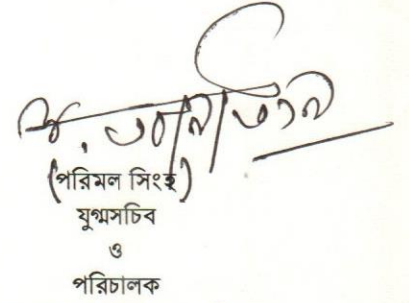 (পরিমল সিংহ)
যুগ্মসচিব
ও
পরিচালক